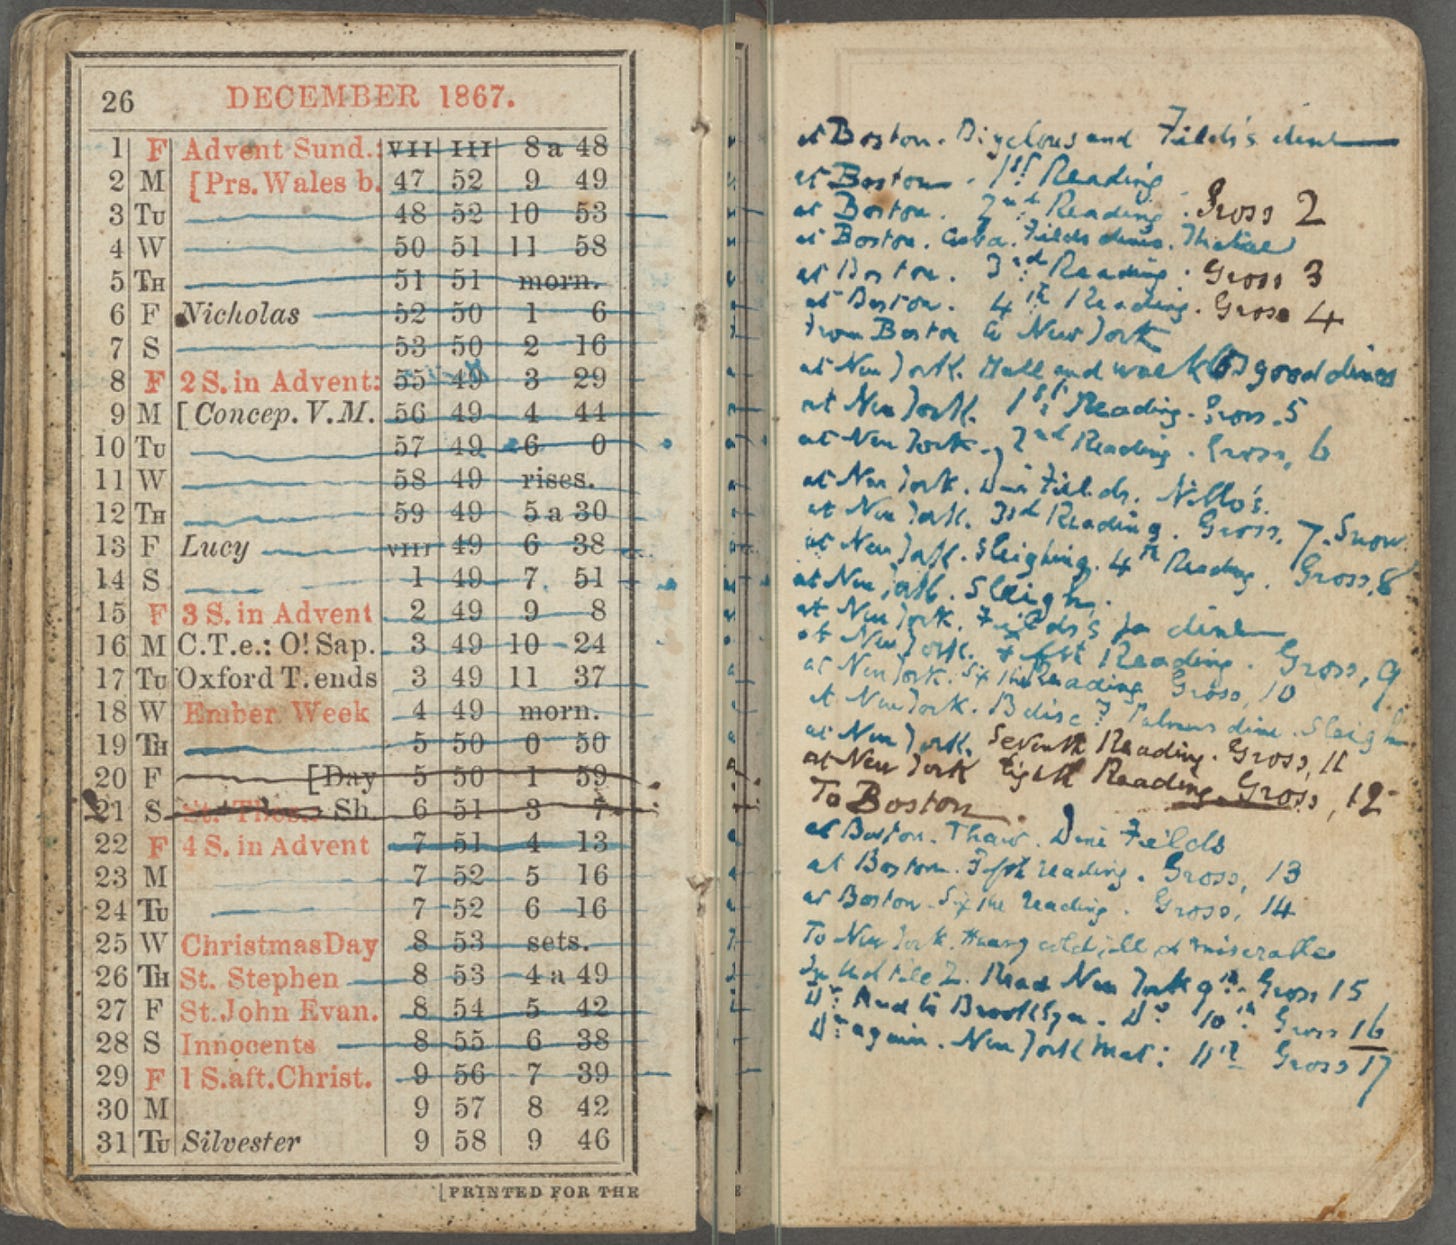 26 DECEMBER 1867.
1 F Advent Sund. VII III 8 a 48
2 M [Prs. Wales b. 47 52 9 49
3 Tu 48 52 10 53
4 W 50 51 11 58
5 Th 51 51 morn.
6 F Nicholas 52 50 1 6
7 S 53 50 2 16
8 F 2 S. in Advent: 55 49 3 29
9 M [Concep. V.M. 56 49 4 44
10 Tu 57 49 6 0
11 W 58 49 rises.
12 Th 59 49 5 a 30
13 F Lucy VIII 49 6 38
14 S 1 49 7 51
15 F 3 S. in Advent 2 49 9 8
16 M C.T.e.: O! Sap. 3 49 10 24
17 Tu Oxford T. ends 3 49 11 37
18 W Ember Week 4 49 morn.
19 Th 5 50 0 50
20 F [Day 5 50 1 59
21 S St. Thos. Sh. 6 51 3 7
22 F 4 S. in Advent 7 51 4 13
23 M 7 52 5 16
24 Tu 7 52 6 16
25 W Christmas Day 8 53 sets.
26 Th St. Stephen 8 53 4 a 49
27 F St. John Evan. 8 54 5 42
28 S Innocents 8 55 6 38
29 F 1 S. aft. Christ. 9 56 7 39
30 M 9 57 8 42
31 Tu Silvester 9 58 9 46
[PRINTED FOR THE
at Boston. and Fields's dine
at Boston. 1st Reading
at Boston. 2nd Reading. Gross 2
at Boston. Fields dine.
at Boston. 3rd Reading. Gross 3
at Boston. 4th Reading. Gross 4
From Boston to New York
at New York. Hall and walk good dinner
at New York. 1st Reading. Gross. 5
at New York. 2nd Reading. Gross, 6
at New York. Dine Fields. Niblo's.
at New York. 3rd Reading. Gross. 7. Snow
at New York. Sleighing. 4th Reading. Gross, 8
at New York. Sleigh.
at New York. Fields's to dine
at New York. Reading. Gross, 9
at New York. Sixth Reading Gross, 10
at New York. dine. Sleigh
at New York. Seventh Reading. Gross, 11
at New York Eighth Reading. Gross, 12
To Boston.
at Boston. Thaw. Dine Fields
at Boston. Fifth reading. Gross, 13
at Boston. Sixth reading. Gross, 14
To New York. Heavy cold, ill & miserable
In bed till 2. Read New York 9th. Gross 15
Do. And to Brooklyn. Do. 10th. Gross 16
Do. again. New York Mat: 11th Gross 17